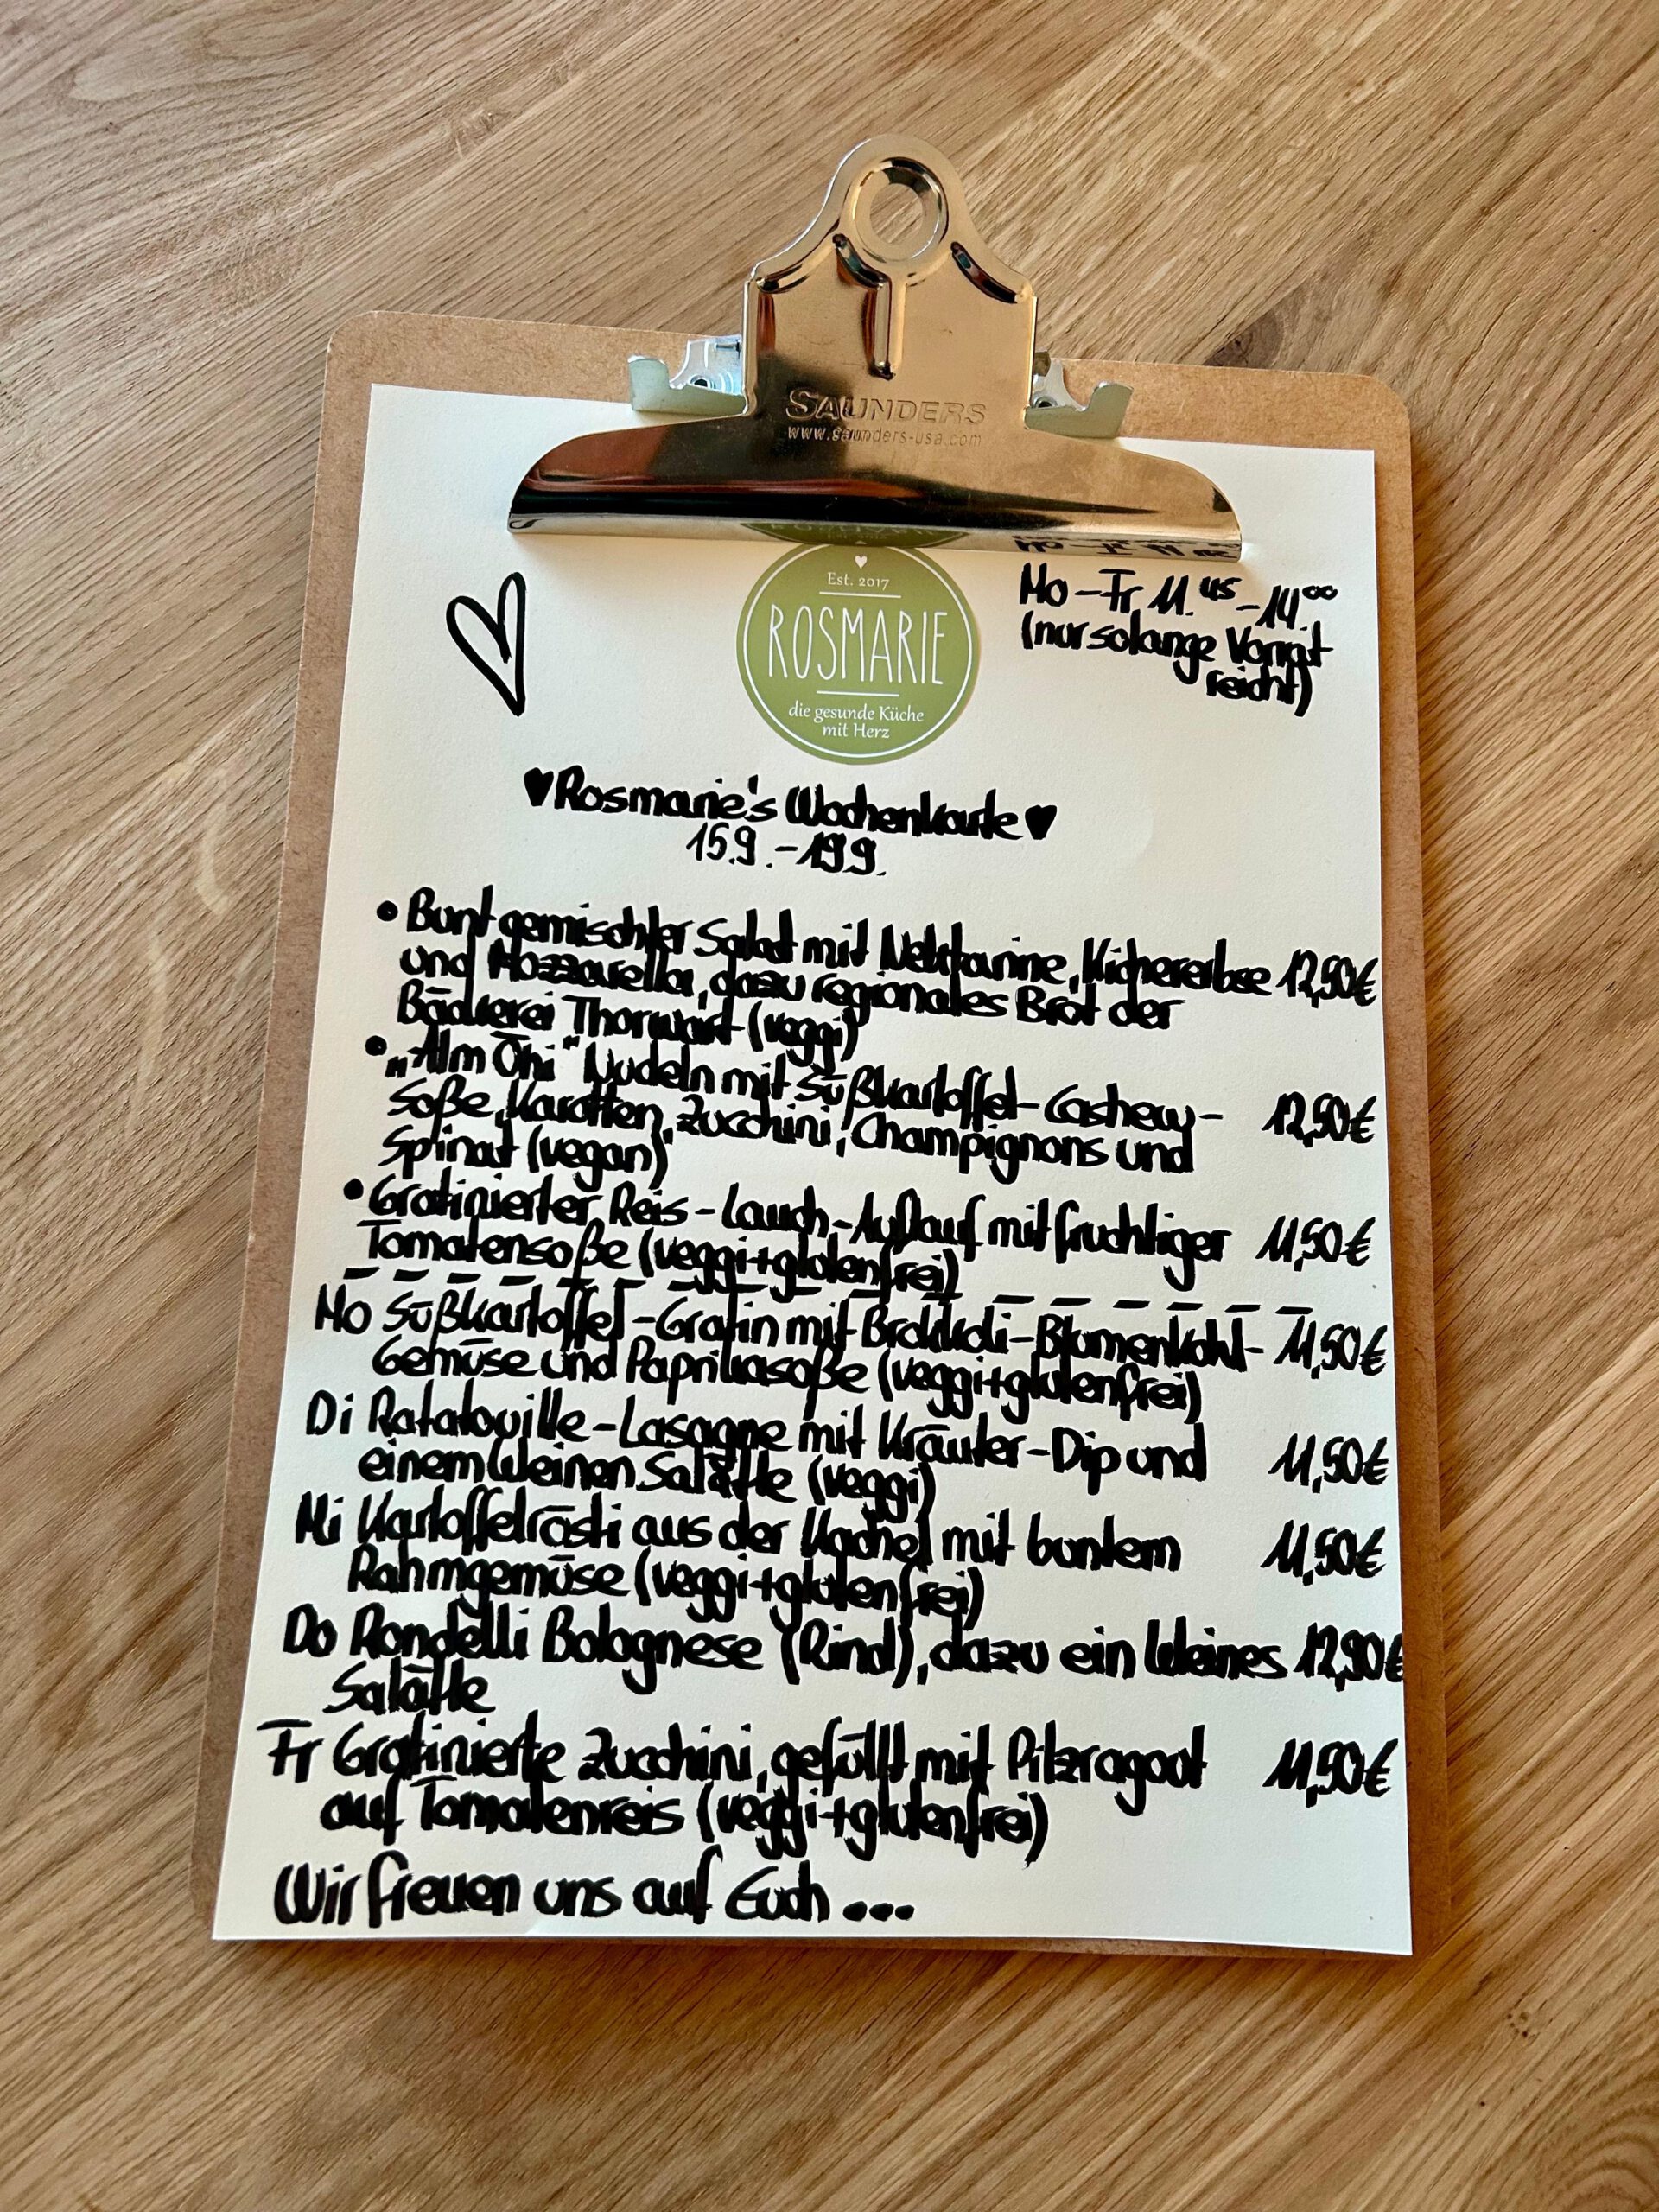 SAUNDERS
www.saunders-usa.com
Est. 2017
ROSMARIE
die gesunde Küche
mit Herz
Mo-Fr 11.45-14.00
(nur solange Vorrat
reicht)
♥Rosmarie's Wochenkarte♥
15.9.-19.9.
• Bunt gemischter Salat mit Nektarine, Kichererbse 12,50€
und Mozzarella, dazu regionales Brot der
Bäckerei Thorwart (veggi)
• „Alm Öhi" Nudeln mit Süßkartoffel-Cashew- 12,50€
Soße, Karotten, Zucchini, Champignons und
Spinat (vegan)
• Gratinierter Reis-Lauch-Auflauf mit fruchtiger 11,50€
Tomatensoße (veggi+glutenfrei)
Mo Süßkartoffel-Gratin mit Brokkoli-Blumenkohl- 11,50€
Gemüse und Paprikasoße (veggi+glutenfrei)
Di Ratatouille-Lasagne mit Kräuter-Dip und 11,50€
einem kleinen Salätle (veggi)
Mi Kartoffelrösti aus der Kachel mit buntem 11,50€
Rahmgemüse (veggi+glutenfrei)
Do Rondelli Bolognese (Rind), dazu ein kleines 12,90€
Salätle
Fr Gratinierte Zucchini, gefüllt mit Pilzragout 11,50€
auf Tomatenreis (veggi+glutenfrei)
Wir freuen uns auf Euch...